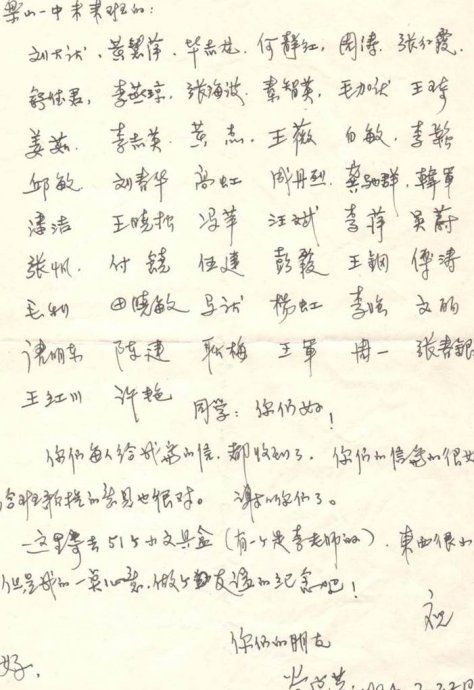 梁山一中未来班的:
刘大沃、黄慧萍、毕志龙、何静红、周涛、张红霞、
舒佳君、李燕琼、张海波、秦智英、毛加伏 王琦
姜茹 李志英 黄杰 王薇 白敏、李
邱敏 刘春华 高虹 周丹烈 龚晓群 韩军
谭洁 王晓松 冯苹 汪斌 李萍 吴蔚
张帆 付镜 伍建 彭毅 王钢 傅涛
毛利 田晓敏 杨虹 李 文丽
诸明东 陈建 耿梅 王军 周一 张春银
王红川 许艳
同学: 你们好!
你们每人给我写的信,都收到了。你们的信写的很好
给班报提的意见也很对。谢谢你们了。
这里寄去51个小文具盒(有一个是李老师的)、東西很小
但是我的一莫心意,做个友谊的纪念吧!
祝
你们的朋友
好。